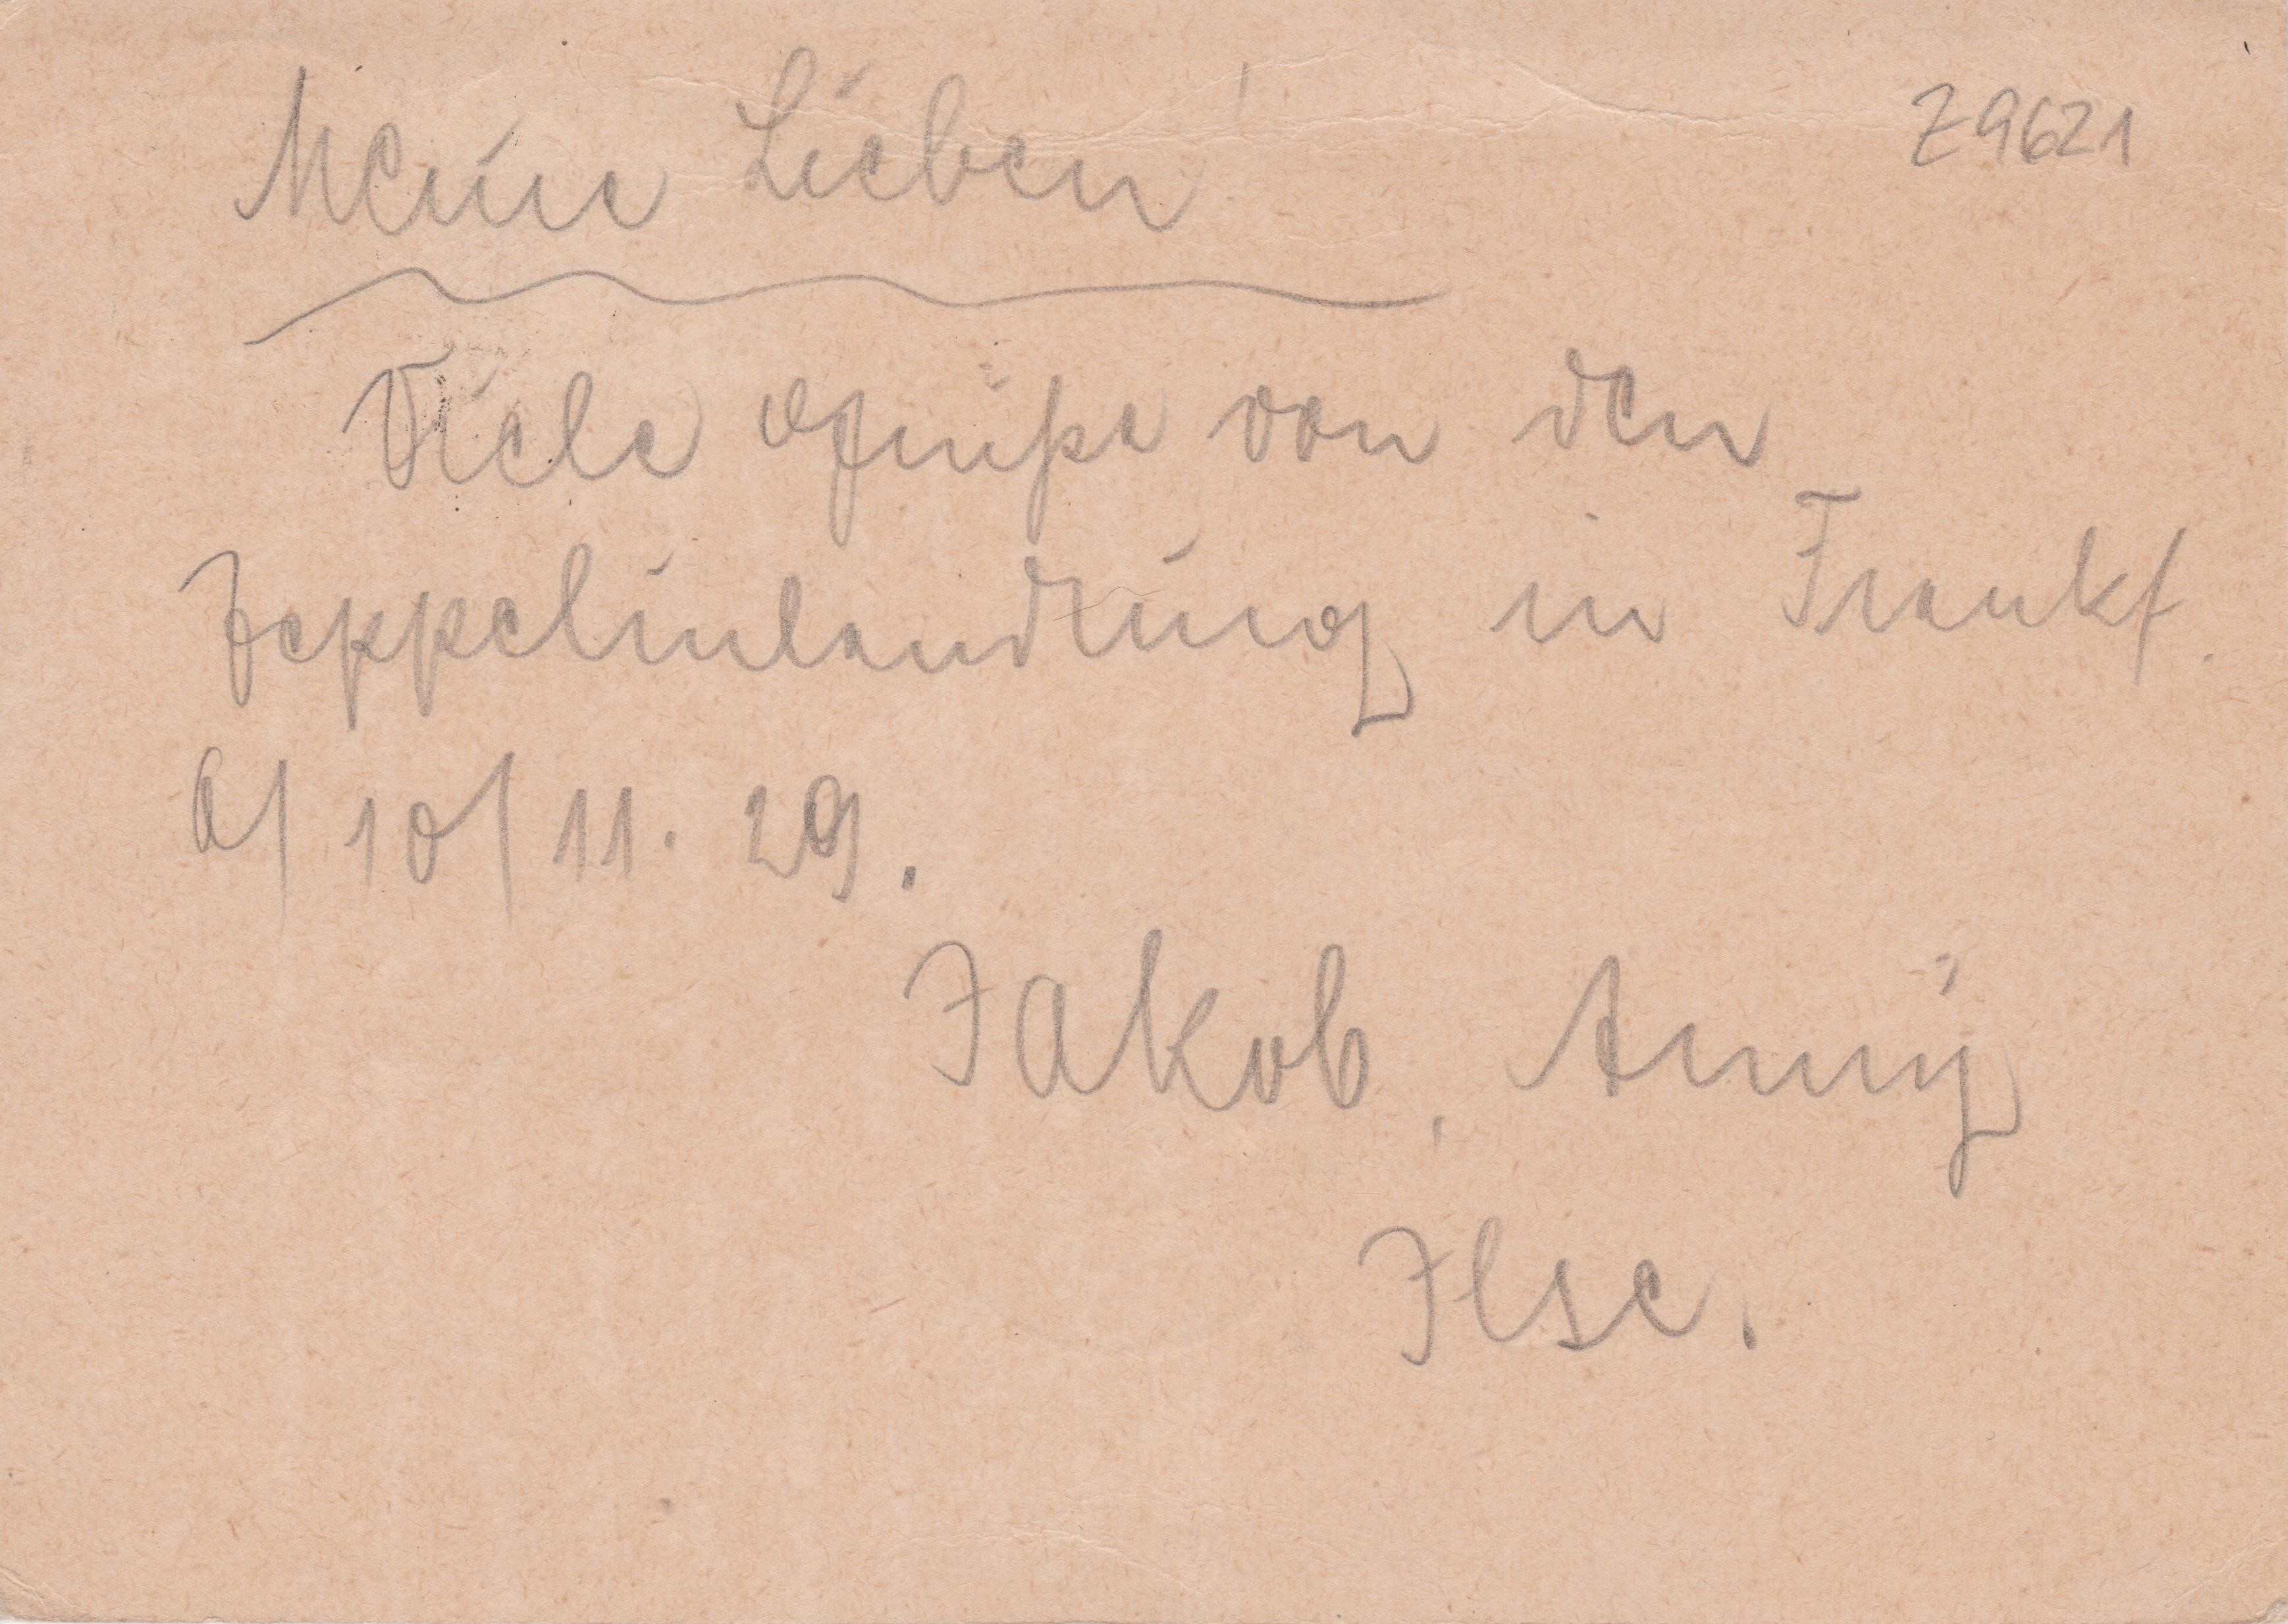 Z9621
Meine Lieben!
Viele Grüße von der
Zeppelinlandung in Frankf.
a/ 10/11. 29.
Jakob, Änny
Ilse.